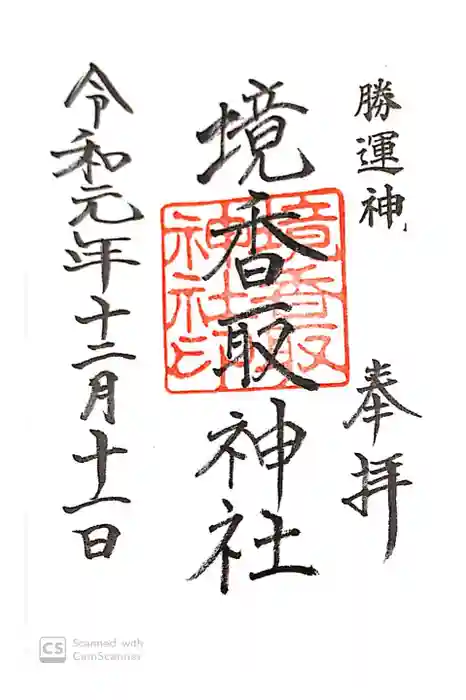 勝運神
奉拝
境香取神社
境香取
神社之印
令和元年十二月十一日
CS Scanned with
CamScanner